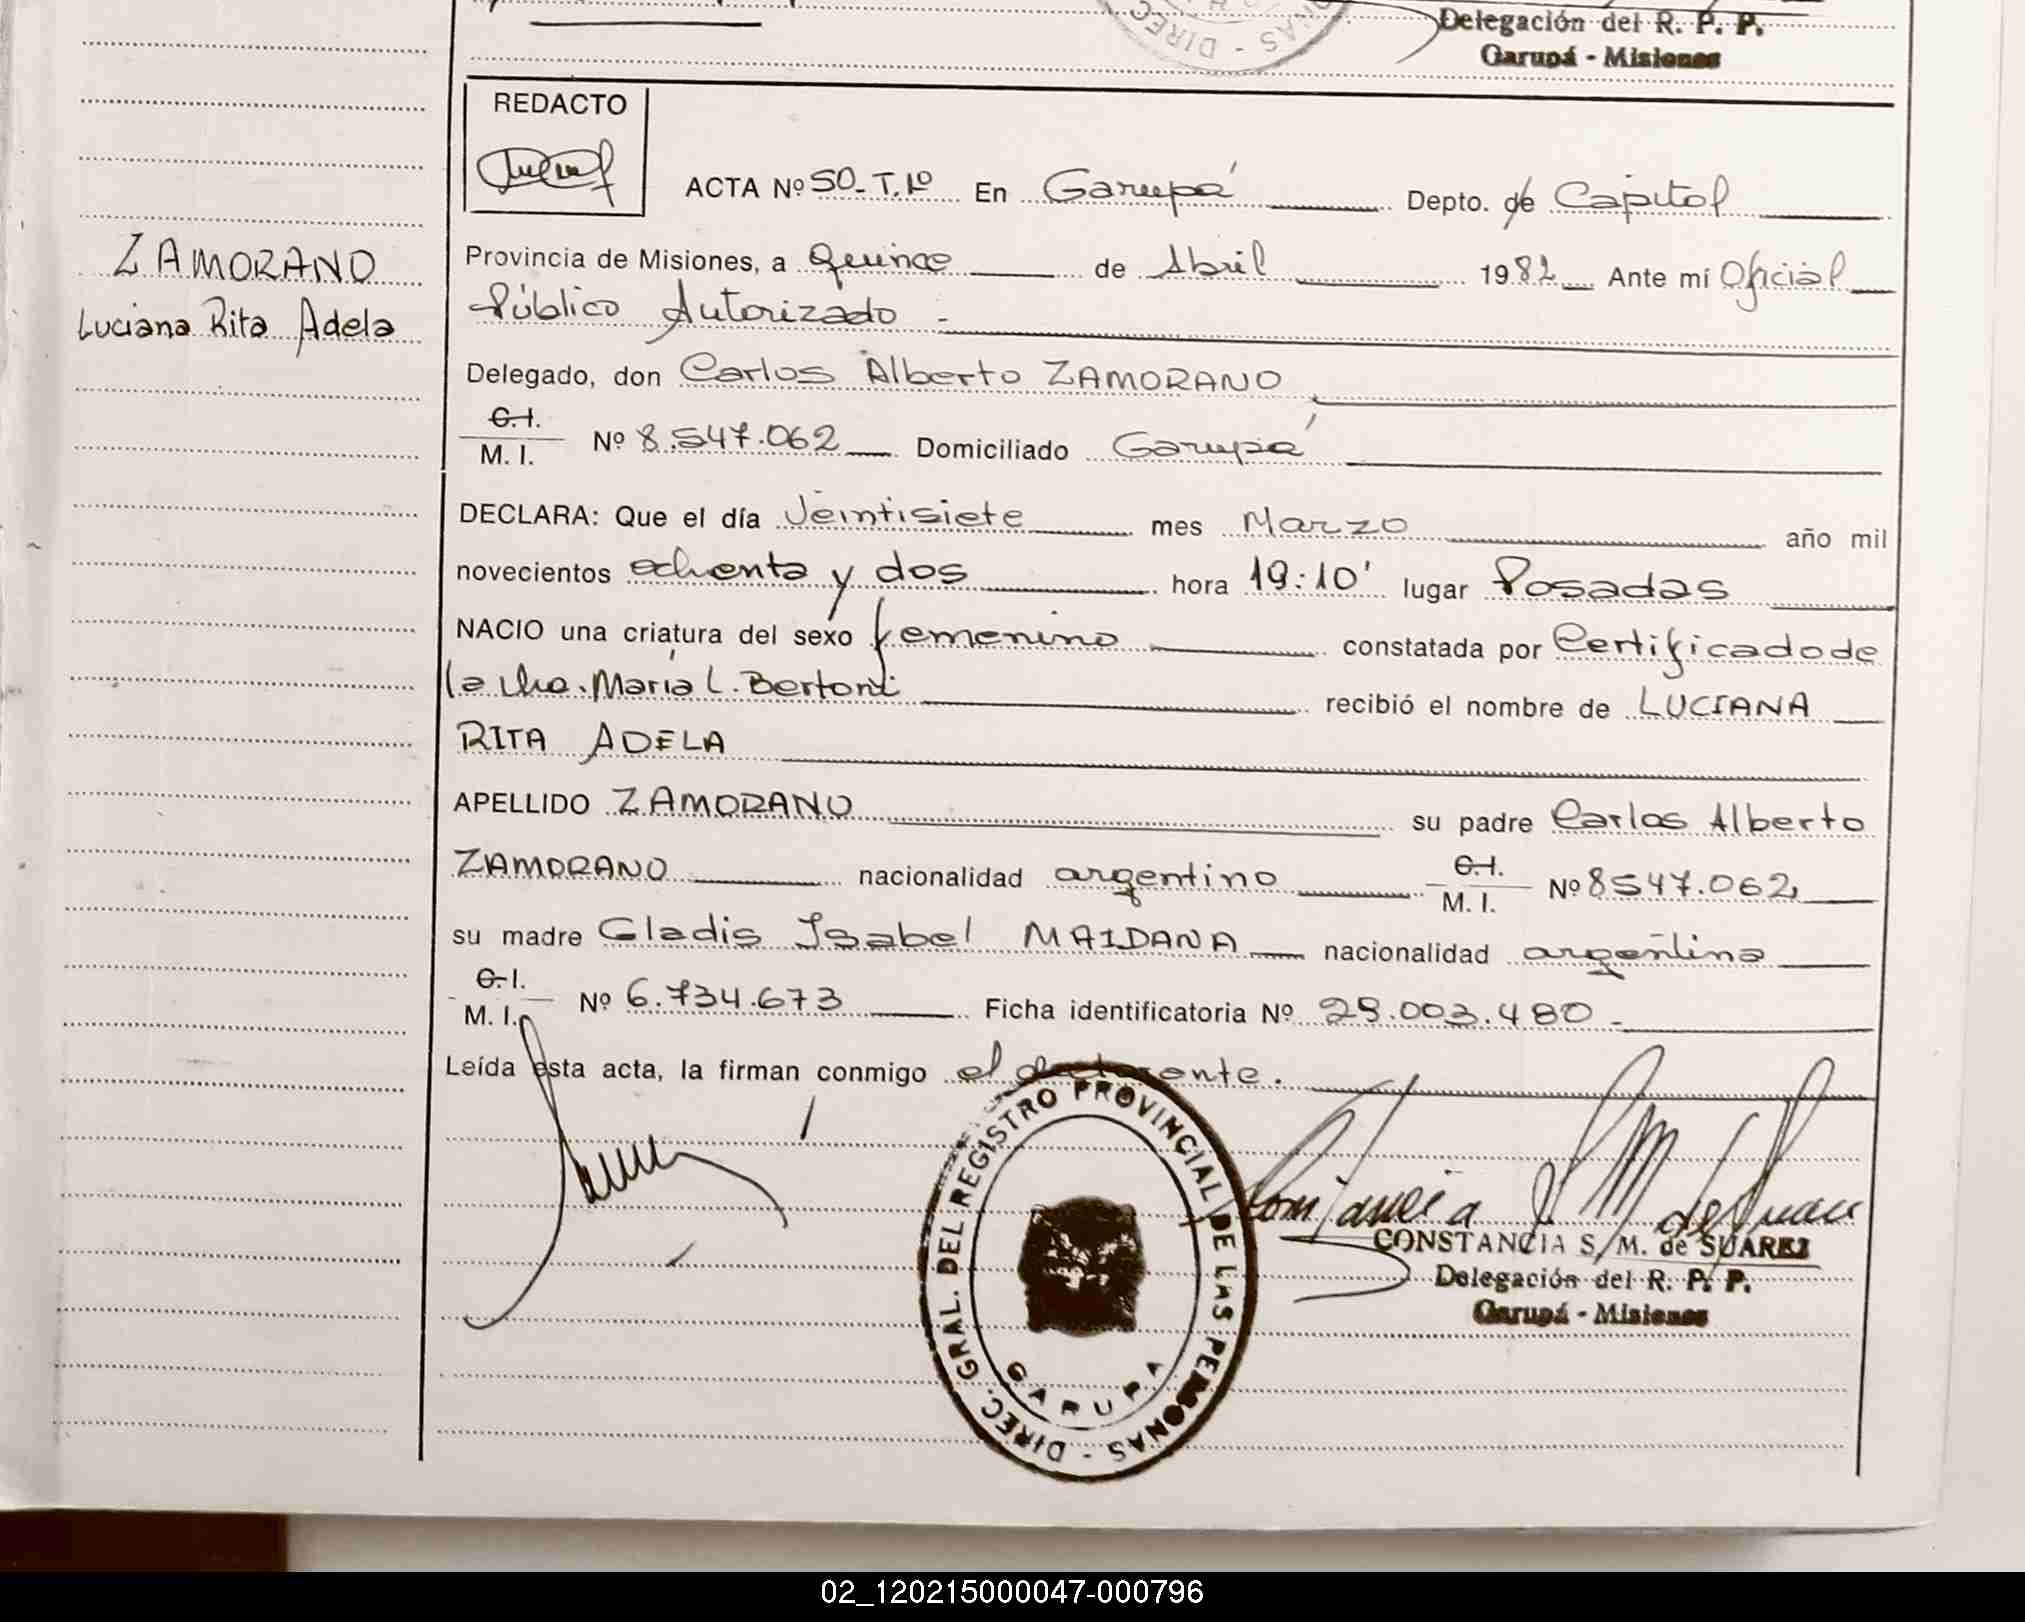 Delegación del R. P. P.
Garupá - Misiones
REDACTO
ACTA Nº 50-T.1º En Garupá Depto. de Capital
ZAMORANO
Luciana Rita Adela
Provincia de Misiones, a Quince de Abril 1982 Ante mí Oficial
Público Autorizado -
Delegado, don Carlos Alberto ZAMORANO
C.I.
M. I. Nº 8.547.062 Domiciliado Garupá
DECLARA: Que el día Veintisiete mes Marzo año mil
novecientos ochenta y dos hora 19:10' lugar Posadas
NACIO una criatura del sexo femenino constatada por Certificado de
la María L. Bertoni recibió el nombre de LUCIANA
RITA ADELA
APELLIDO ZAMORANO su padre Carlos Alberto
ZAMORANO nacionalidad argentino C.I. M. I. Nº 8547.062
su madre Gladis Isabel MAIDANA nacionalidad argentina
C.I.
M. I. Nº 6.734.673 Ficha identificatoria Nº 29.003.480 -
Leída esta acta, la firman conmigo el declarente.
DIREC. GRAL. DEL REGISTRO PROVINCIAL DE LAS PERSONAS -
GARUPA
Constancia S M de Suarez
CONSTANCIA S. M. de SUAREZ
Delegación del R. P. P.
Garupá - Misiones
02_120215000047-000796